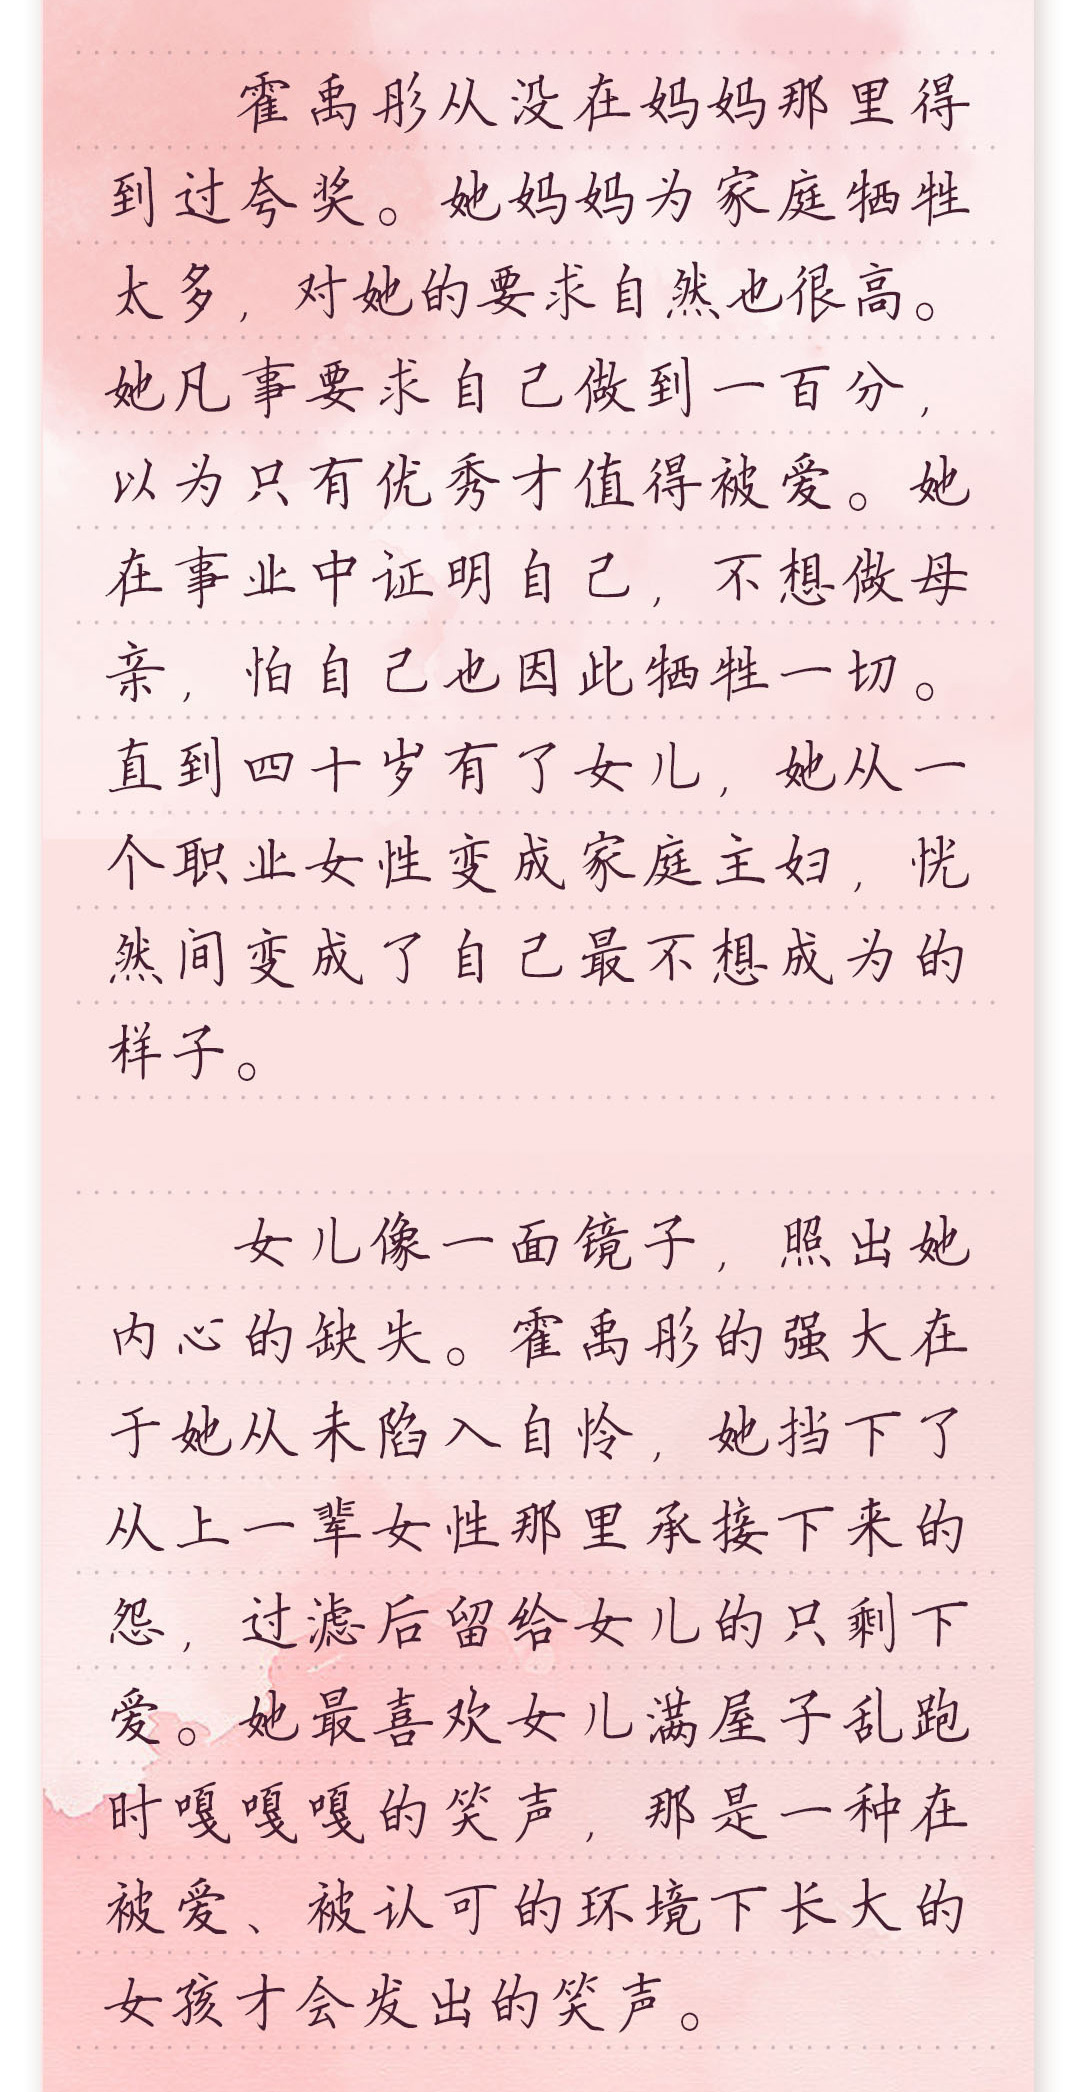 霍禹彤从没在妈妈那里得
到过夸奖。她妈妈为家庭牺牲
太多，对她的要求自然也很高。
她凡事要求自己做到一百分，
以为只有优秀才值得被爱。她
在事业中证明自己，不想做母
亲，怕自己也因此牺牲一切。
直到四十岁有了女儿，她从一
个职业女性变成家庭主妇，恍
然间变成了自己最不想成为的
样子。
女儿像一面镜子，照出她
内心的缺失。霍禹彤的强大在
于她从未陷入自怜，她挡下了
从上一辈女性那里承接下来的
怨，过滤后留给女儿的只剩下
爱。她最喜欢女儿满屋子乱跑
时嘎嘎嘎的笑声，那是一种在
被爱、被认可的环境下长大的
女孩才会发出的笑声。